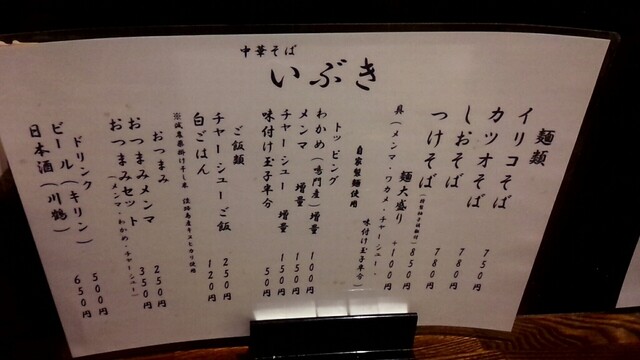 中華そば
いぶき
麺類
イリコそば 750円
カツオそば
しおそば 780円
つけそば 780円
麺大盛り +100円
具(メンマ・ワカメ・チャーシュー・味付け玉子半分)
自家製麺使用
トッピング
わかめ(鳴門産)増量 100円
メンマ 増量 150円
チャーシュー 増量 150円
味付け玉子半分 50円
ご飯類
チャーシューご飯 250円
白ごはん 120円
おつまみ
おつまみメンマ 250円
おつまみセット 350円
(メンマ・わかめ・チャーシュー)
ドリンク
ビール(キリン) 500円
日本酒(川鶴) 650円